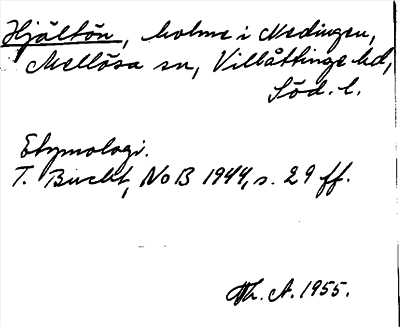 Hjältön, holme i Medingen,
Mellösa sn, Villåttinge hd,
Söd. l.
Etymologi.
T. Bucht, NoB 1944, s. 29 ff.
Th. A. 1955.